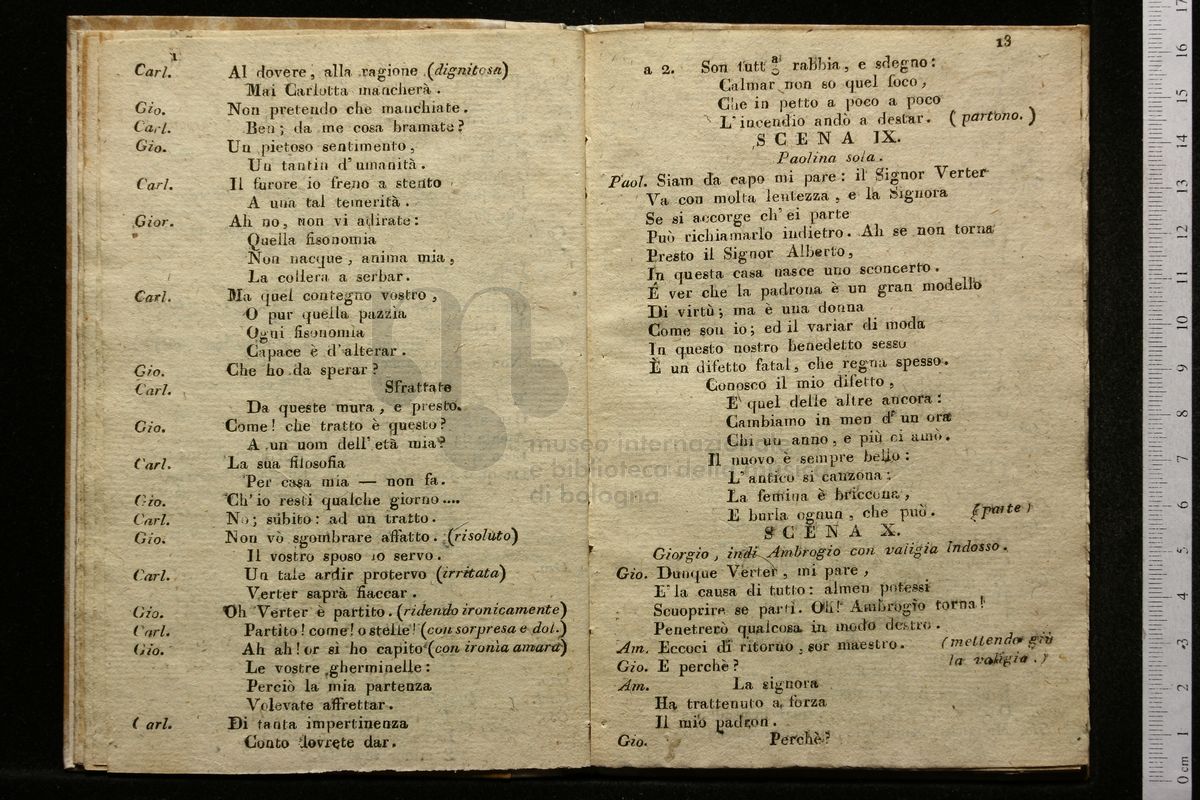 Carl. Al dovere, alla ragione (dignitosa)
Mai Carlotta mancherà.
Gio. Non pretendo che manchiate.
Carl. Ben; da me cosa bramate?
Gio. Un pietoso sentimento,
Un tantin d'umanità.
Carl. Il furore io freno a stento
A una tal temerità.
Gior. Ah no, non vi adirate:
Quella fisonomia
Non nacque, anima mia,
La collera a serbar.
Carl. Ma quel contegno vostro,
O pur quella pazzia
Ogni fisonomia
Capace è d'alterar.
Gio. Che ho da sperar?
Carl. Sfrattate
Da queste mura, e presto.
Gio. Come! che tratto è questo?
A un uom dell'età mia?
Carl. La sua filosofia
Per casa mia — non fa.
Gio. Ch'io resti qualche giorno....
Carl. No; subito: ad un tratto.
Gio. Non vò sgombrare affatto. (risoluto)
Il vostro sposo io servo.
Carl. Un tale ardir protervo (irritata)
Verter saprà fiaccar.
Gio. Oh Verter è partito. (ridendo ironicamente)
Carl. Partito! come! o stelle! (con sorpresa e dol.)
Gio. Ah ah! or si ho capito (con ironia amara)
Le vostre gherminelle:
Perciò la mia partenza
Volevate affrettar.
Carl. Di tanta impertinenza
Conto dovrete dar.
13
a 2. Son tutt a/o rabbia, e sdegno:
Calmar non so quel foco,
Che in petto a poco a poco
L'incendio andò a destar. (partono.)
SCENA IX.
Paolina sola.
Paol. Siam da capo mi pare: il Signor Verter
Va con molta lentezza, e la Signora
Se si accorge ch'ei parte
Può richiamarlo indietro. Ah se non torna
Presto il Signor Alberto,
In questa casa nasce uno sconcerto.
É ver che la padrona è un gran modello
Di virtù; ma è una donna
Come son io; ed il variar di moda
In questo nostro benedetto sesso
È un difetto fatal, che regna spesso.
Conosco il mio difetto,
E' quel delle altre ancora:
Cambiamo in men d'un ora
Chi un anno, e più ci amò.
Il nuovo è sempre bello:
L'antico si canzona:
La femina è briccona,
E burla ognun, che può. (parte)
SCENA X.
Giorgio, indi Ambrogio con valigia indosso.
Gio. Dunque Verter, mi pare,
E' la causa di tutto: almen potessi
Scuoprire se partì. Oh! Ambrogio torna!
Penetrerò qualcosa in modo destro.
Am. Eccoci di ritorno, sor maestro. (mettendo giù
la valigia.)
Gio. E perchè?
Am. La signora
Ha trattenuto a forza
Il mio padron.
Gio. Perchè?
museo internazionale
e biblioteca della musica
di bologna
0 cm 1 2 3 4 5 6 7 8 9 10 11 12 13 14 15 16 17